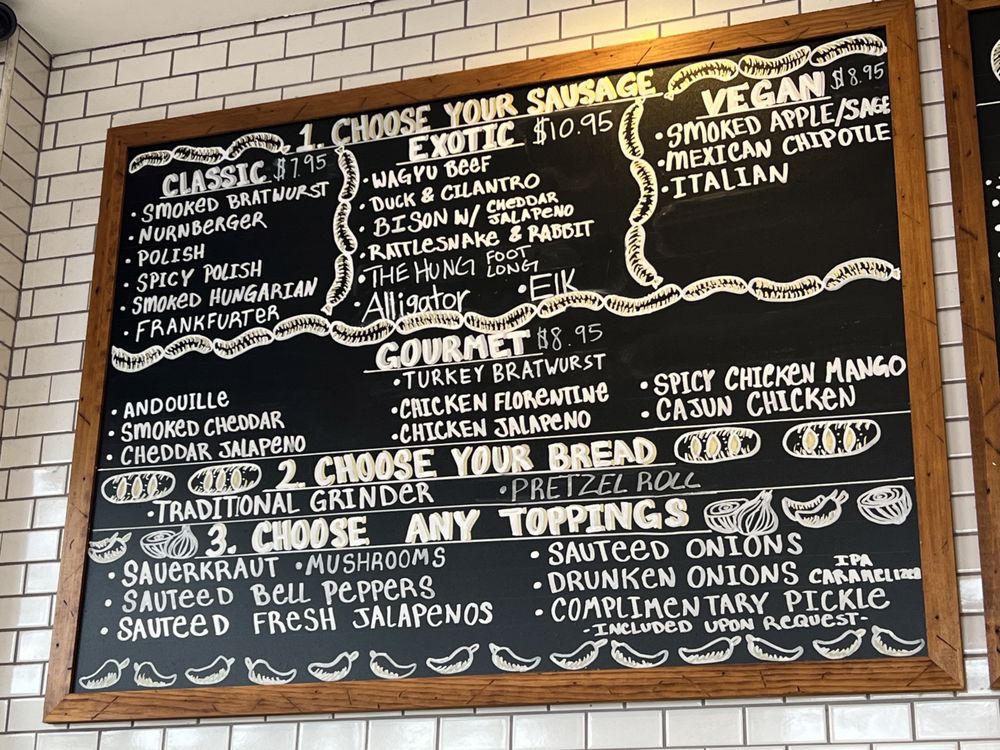 1. CHOOSE YOUR SAUSAGE
CLASSIC $7.95
• SMOKED BRATWURST
• NURNBERGER
• POLISH
• SPICY POLISH
• SMOKED HUNGARIAN
• FRANKFURTER
EXOTIC $10.95
• WAGYU BEEF
• DUCK & CILANTRO
• BISON W/ CHEDDAR JALAPENO
• RATTLESNAKE & RABBIT
• THE HUNG FOOT LONG
• Alligator • Elk
VEGAN $8.95
• SMOKED APPLE/SAGE
• MEXICAN CHIPOTLE
• ITALIAN
GOURMET $8.95
• ANDOUILLE
• SMOKED CHEDDAR
• CHEDDAR JALAPENO
• TURKEY BRATWURST
• CHICKEN FLORENTINE
• CHICKEN JALAPENO
• SPICY CHICKEN MANGO
• CAJUN CHICKEN
2. CHOOSE YOUR BREAD
• TRADITIONAL GRINDER • PRETZEL ROLL
3. CHOOSE ANY TOPPINGS
• SAUERKRAUT • MUSHROOMS
• SAUTEED BELL PEPPERS
• SAUTEED FRESH JALAPENOS
• SAUTEED ONIONS
• DRUNKEN ONIONS IPA CARAMELIZED
• COMPLIMENTARY PICKLE
- INCLUDED UPON REQUEST -